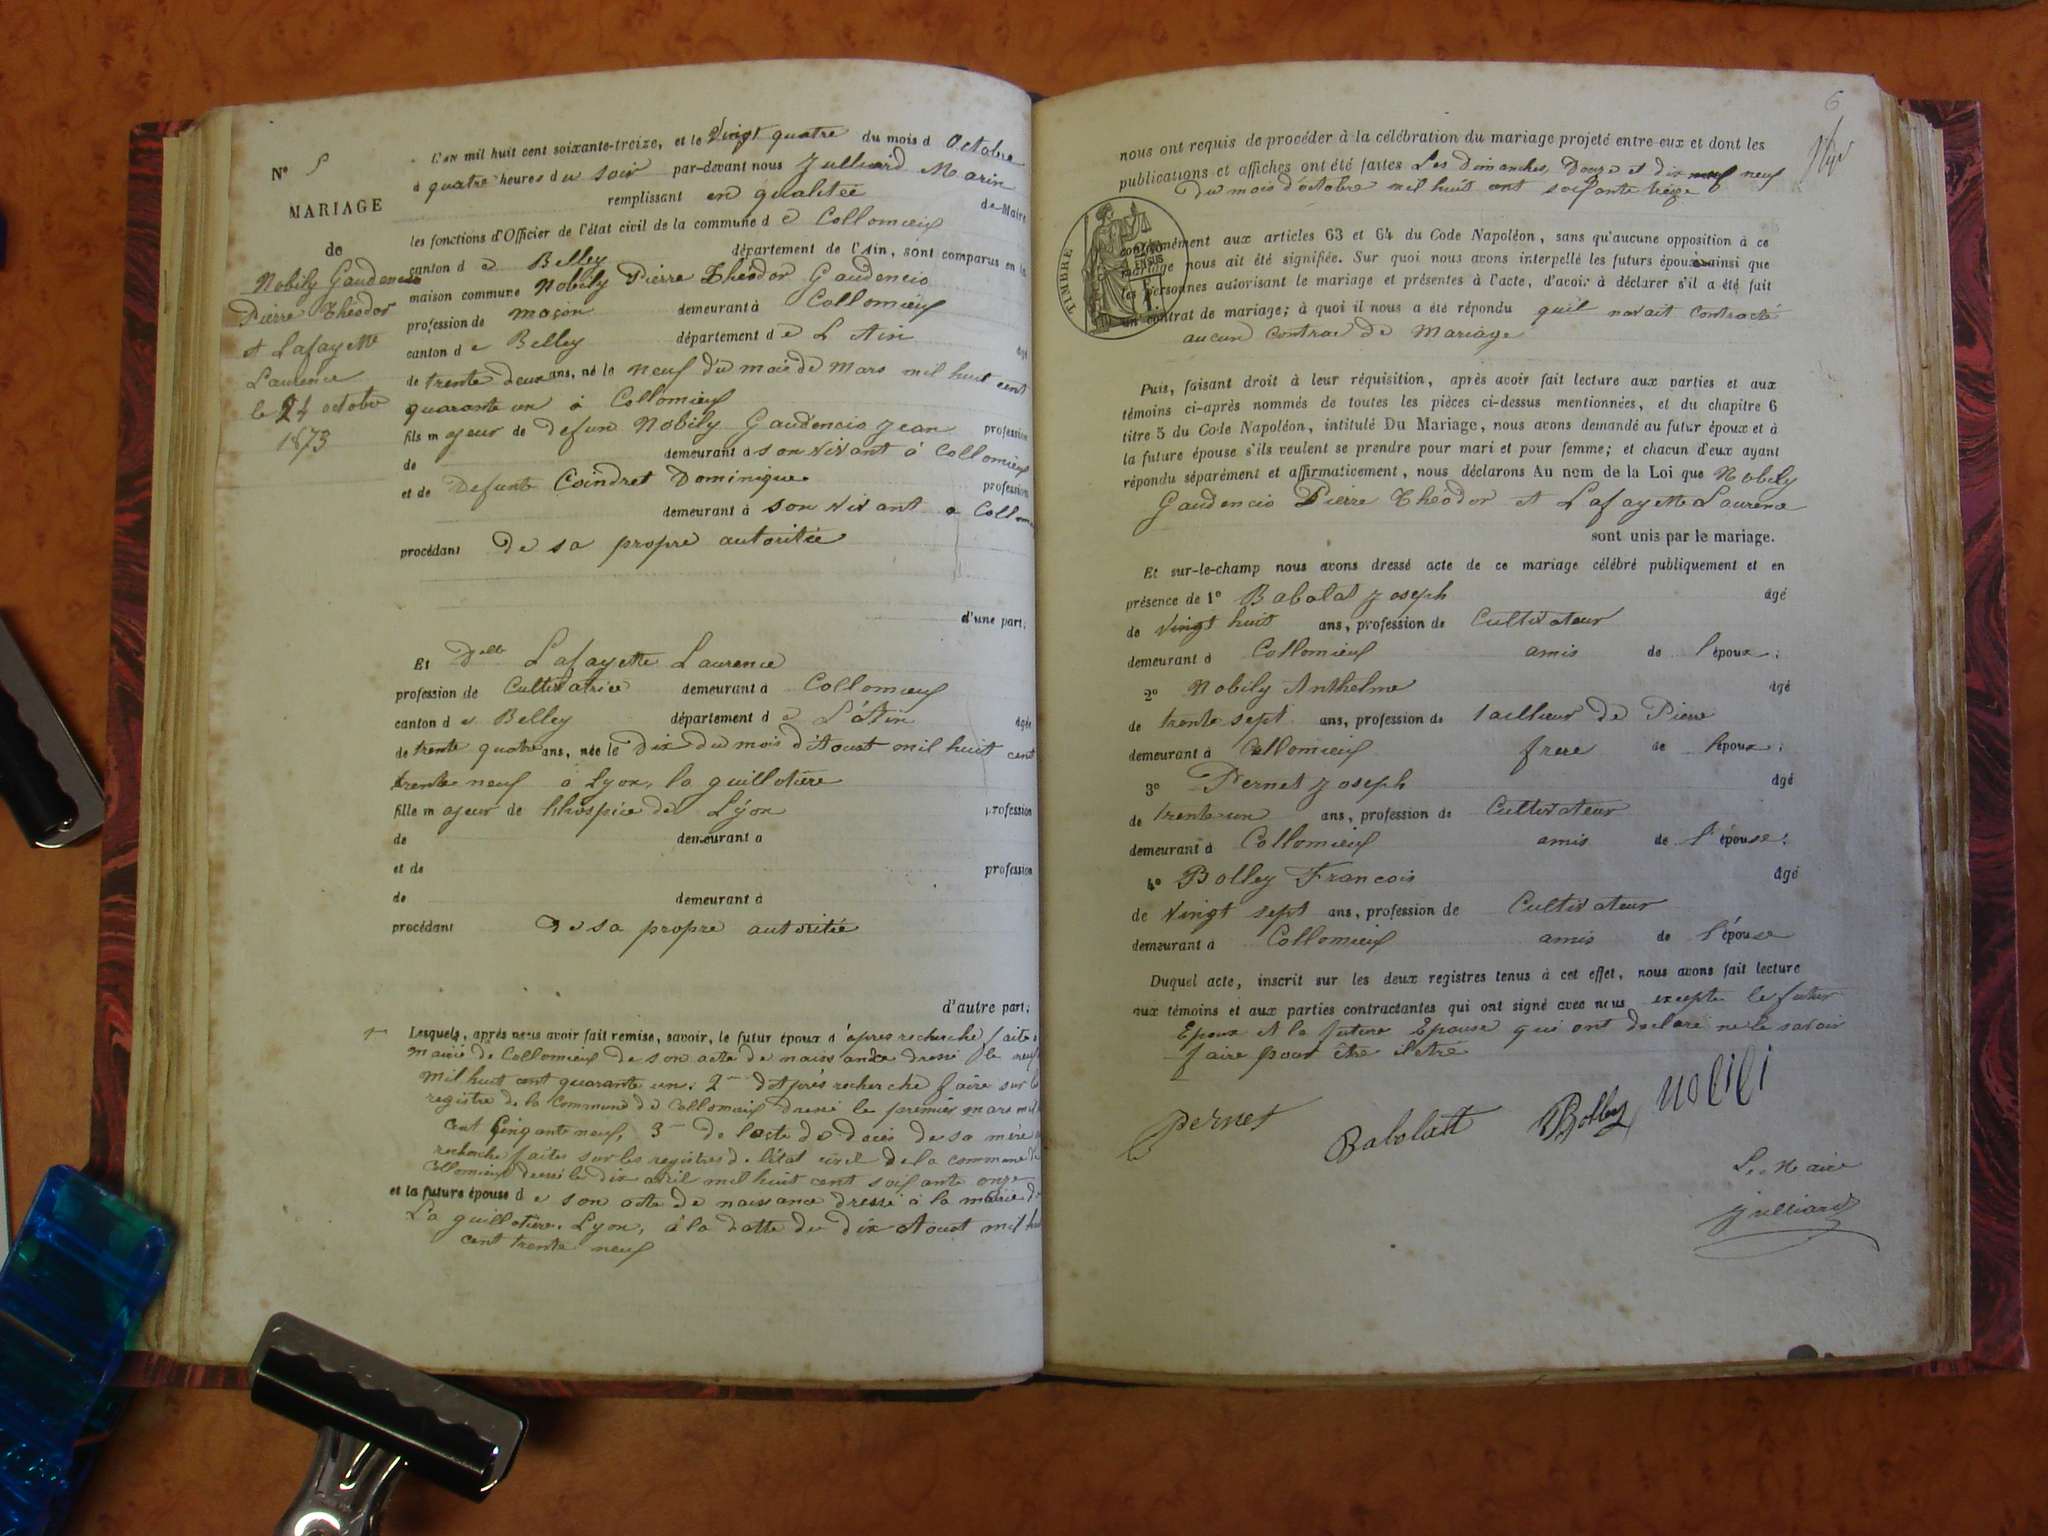 N° 5
MARIAGE
de
Nobily Gaudencio
Pierre Théodor
et Lafayette
Laurence
le 24 octobre
1873
L'an mil huit cent soixante-treize, et le Vingt quatre du mois d Octobre
à quatre heures du soir par-devant nous Julliard Marin
remplissant en qualitée de Maire
les fonctions d'Officier de l'état civil de la commune d e Collomieux
canton d e Belley département de l'Ain, sont comparus en la
maison commune Nobily Pierre Théodor Gaudencio
profession de maçon demeurant à Collomieux
canton d e Belley département d e L Ain âgé
de trente deux ans, né le neuf du mois de mars mil huit cent
quarante un à Collomieux
fils m ajeur de defun Nobily Gaudencio Jean profession
de demeurant à son vivant à Collomieux
et de Defunte Coindret Dominique profession
demeurant à son vivant a Collom
procédant De sa propre autoritée
d'une part;
Et Delle Lafayette Laurence
profession de Cultivatrice demeurant à Collomieux
canton d e Belley département d e L'Ain âgée
de trente quatre ans, née le Dix du mois d'Aoust mil huit cent
trente neuf à Lyon, la guillotière
fille m ajeur de l'hospice de Lyon profession
de demeurant à
et de profession
de demeurant à
procédant De sa propre autoritée
d'autre part;
Lesquels, après nous avoir fait remise, savoir, le futur époux d'apres recherche faite a
mairie de Collomieux de son acte de naissance dressé le neuf
mil huit cent quarante un. 2 d'après recherche faire sur le
registre de la Commune de Collomieux dressé le premier mars mil
cent Cinquante neuf, 3 De l'acte de décès de sa mère
recherche faites sur les registres de l'état civil de la commune de
Collomieux dressé le dix avril mil huit cent soixante onze
et la future épouse d e son acte de naissance dressé à la mairie de
La guillotière. Lyon, à la datte du dix Aoust mil hui
cent trente neuf
6
nous ont requis de procéder à la célébration du mariage projeté entre eux et dont les
publications et affiches ont été faites Les Dimanches Douze et dix neuf
Du mois d'octobre mil huit cent soixante treize
TIMBRE
conformément aux articles 63 et 64 du Code Napoléon, sans qu'aucune opposition à ce
mariage nous ait été signifiée. Sur quoi nous avons interpellé les futurs époux ainsi que
les personnes autorisant le mariage et présentes à l'acte, d'avoir à déclarer s'il a été fait
un contrat de mariage; à quoi il nous a été répondu quil navait contracté
aucun contrac de Mariage
Puis, faisant droit à leur réquisition, après avoir fait lecture aux parties et aux
témoins ci-après nommés de toutes les pièces ci-dessus mentionnées, et du chapitre 6
titre 5 du Code Napoléon, intitulé Du Mariage, nous avons demandé au futur époux et à
la future épouse s'ils veulent se prendre pour mari et pour femme; et chacun d'eux ayant
répondu séparément et affirmativement, nous déclarons Au nom de la Loi que Nobily
Gaudencio Pierre Théodor et Lafayette Laurence
sont unis par le mariage.
Et sur-le-champ nous avons dressé acte de ce mariage célébré publiquement et en
présence de 1° Babolat Joseph âgé
de Vingt huit ans, profession de Cultivateur
demeurant à Collomieux amis de l'époux;
2° Nobily Anthelme âgé
de trente sept ans, profession de tailleur de Pierre
demeurant à Collomieux frere de l'époux;
3° Pernet Joseph âgé
de trente un ans, profession de Cultivateur
demeurant à Collomieux amis de l'épouse;
4° Bolley Francois âgé
de Vingt sept ans, profession de Cultivateur
demeurant à Collomieux amis de l'épouse
Duquel acte, inscrit sur les deux registres tenus à cet effet, nous avons fait lecture
aux témoins et aux parties contractantes qui ont signé avec nous excepte le futur
Epoux et la future Epouse qui ont declaré ne le savoir
faire pour être iletré
Pernet Babolat Bolley nolili
Le Maire
Julliard